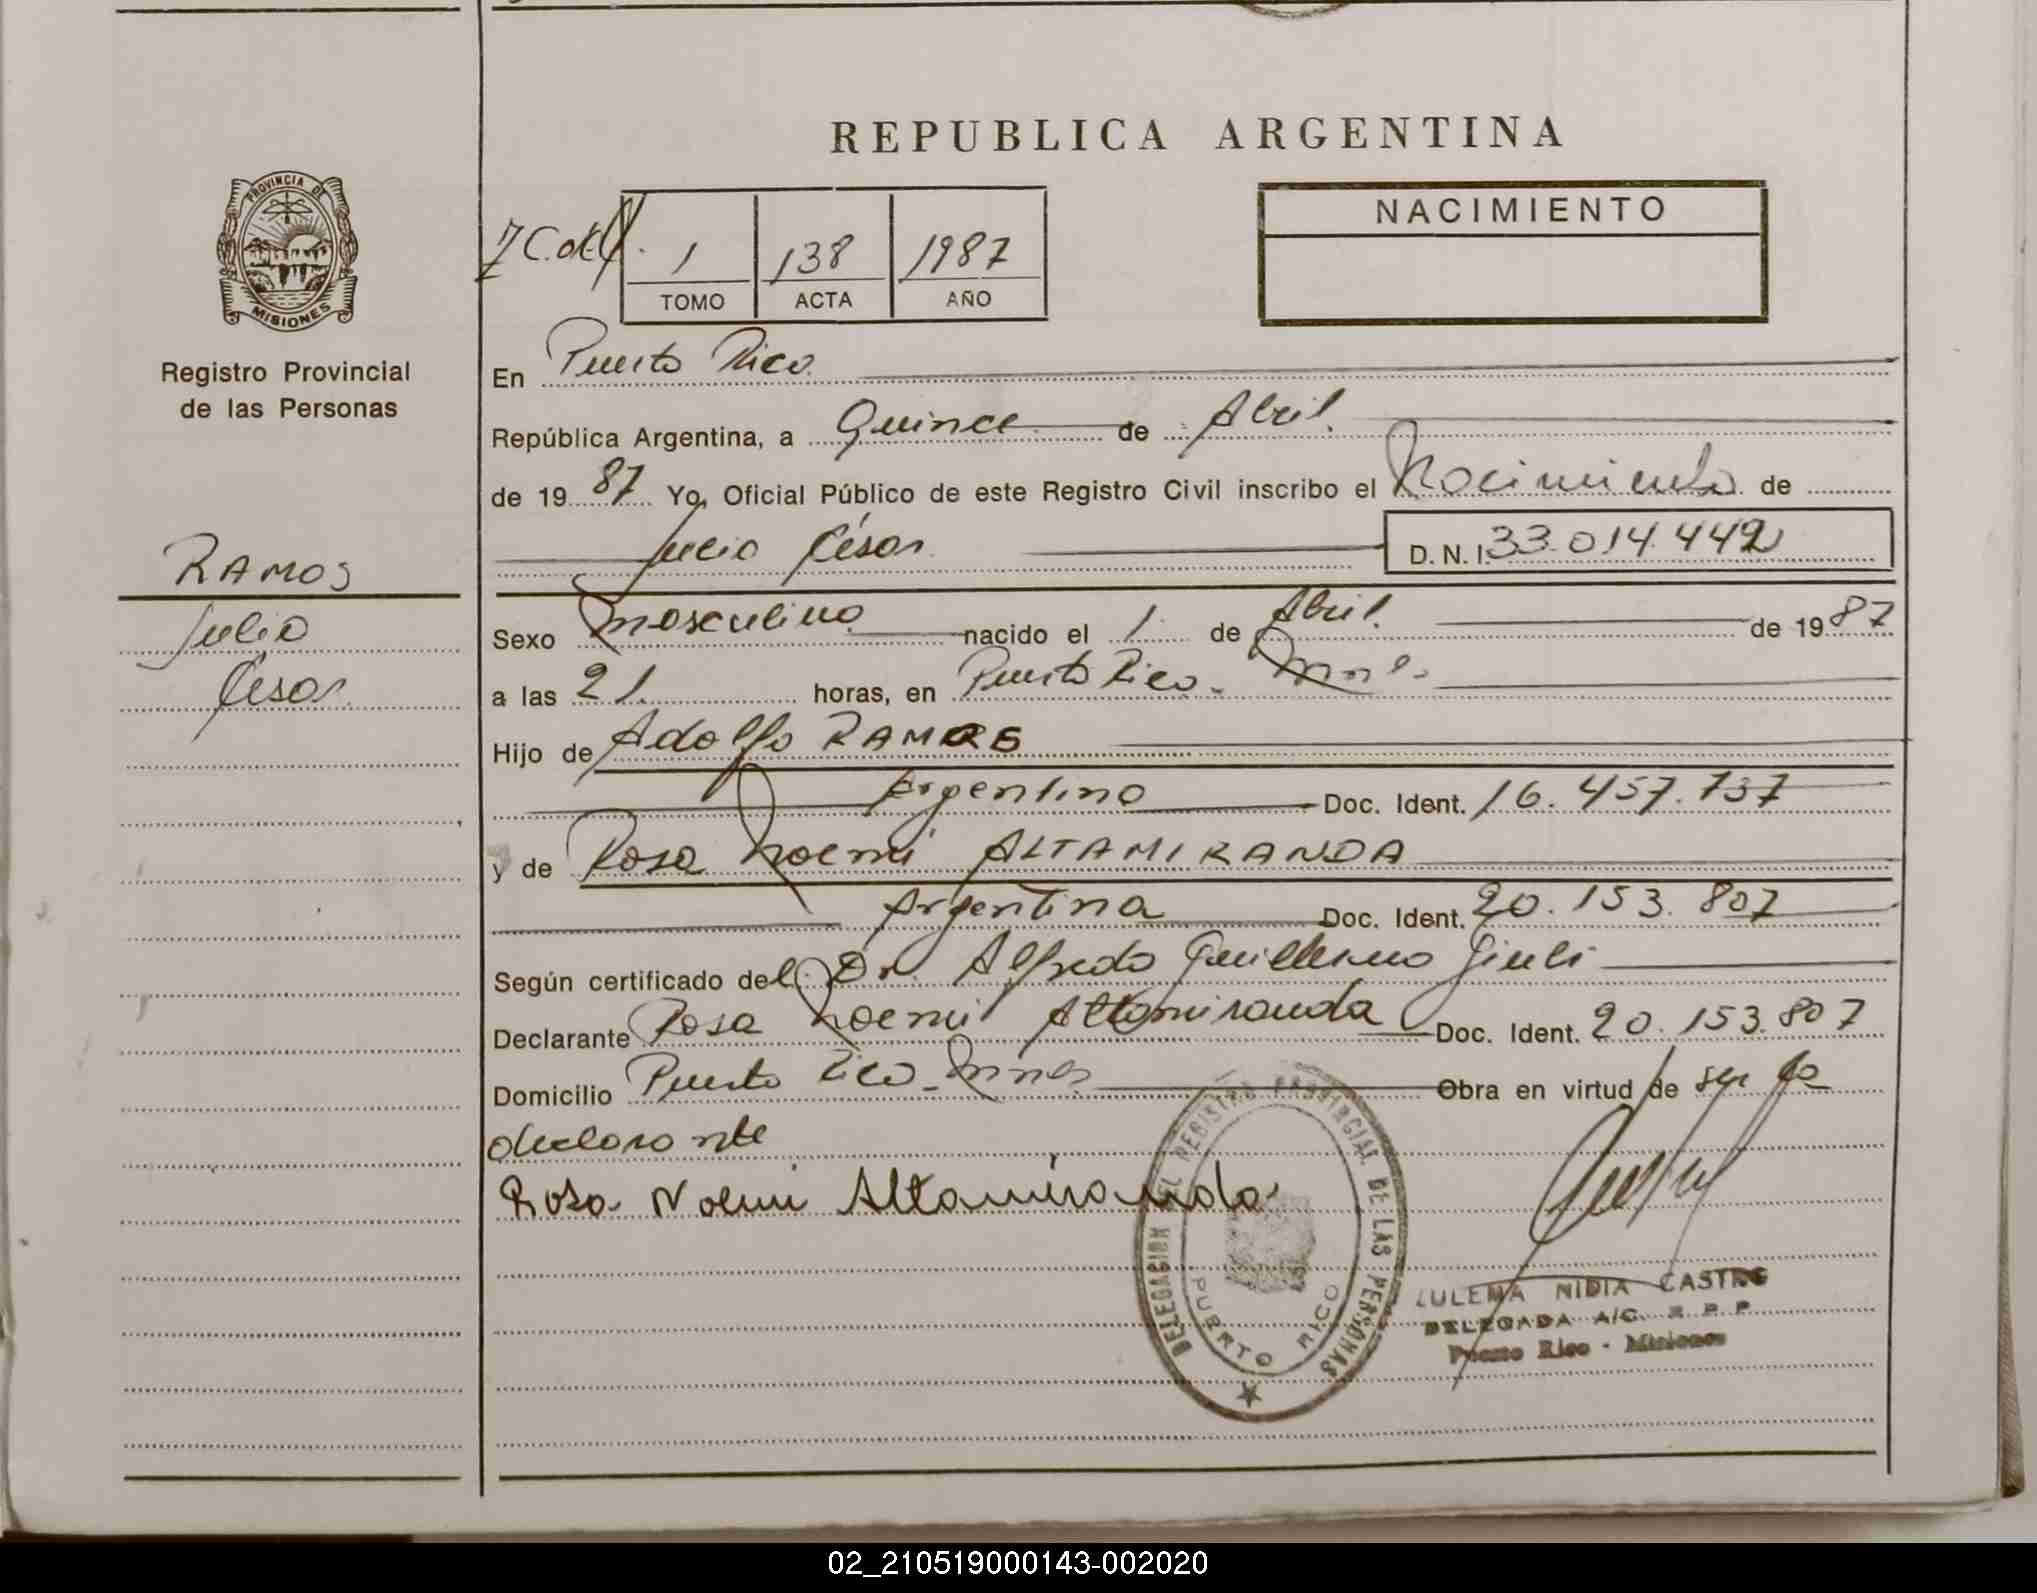 REPUBLICA ARGENTINA
PROVINCIA DE
MISIONES
Registro Provincial
de las Personas
1 138 1987
TOMO ACTA AÑO
NACIMIENTO
RAMOS
Julio
César
En Puerto Rico.
República Argentina, a Quince de Abril.
de 1987 Yo, Oficial Público de este Registro Civil inscribo el Nacimiento de
Julio César D.N.I. 33.014.442
Sexo Masculino nacido el 1 de Abril. de 1987
a las 21. horas, en Puerto Rico - Mnes
Hijo de Adolfo RAMOS
Argentino Doc. Ident. 16.457.737
y de Rosa Noemi ALTAMIRANDA
Argentina Doc. Ident. 20.153.807
Según certificado del Dr. Alfredo Guillermo Giuli
Declarante Rosa Noemi Altamiranda Doc. Ident. 20.153.807
Domicilio Puerto Rico - Mnes Obra en virtud de ser la
declarante
Rosa Noemi Altamiranda
DELEGACION DEL REGISTRO PROVINCIAL DE LAS PERSONAS
PUERTO RICO
ZULEMA NIDIA CASTRO
DELEGADA A/C. R. P. P.
Puerto Rico - Misiones
02_210519000143-002020